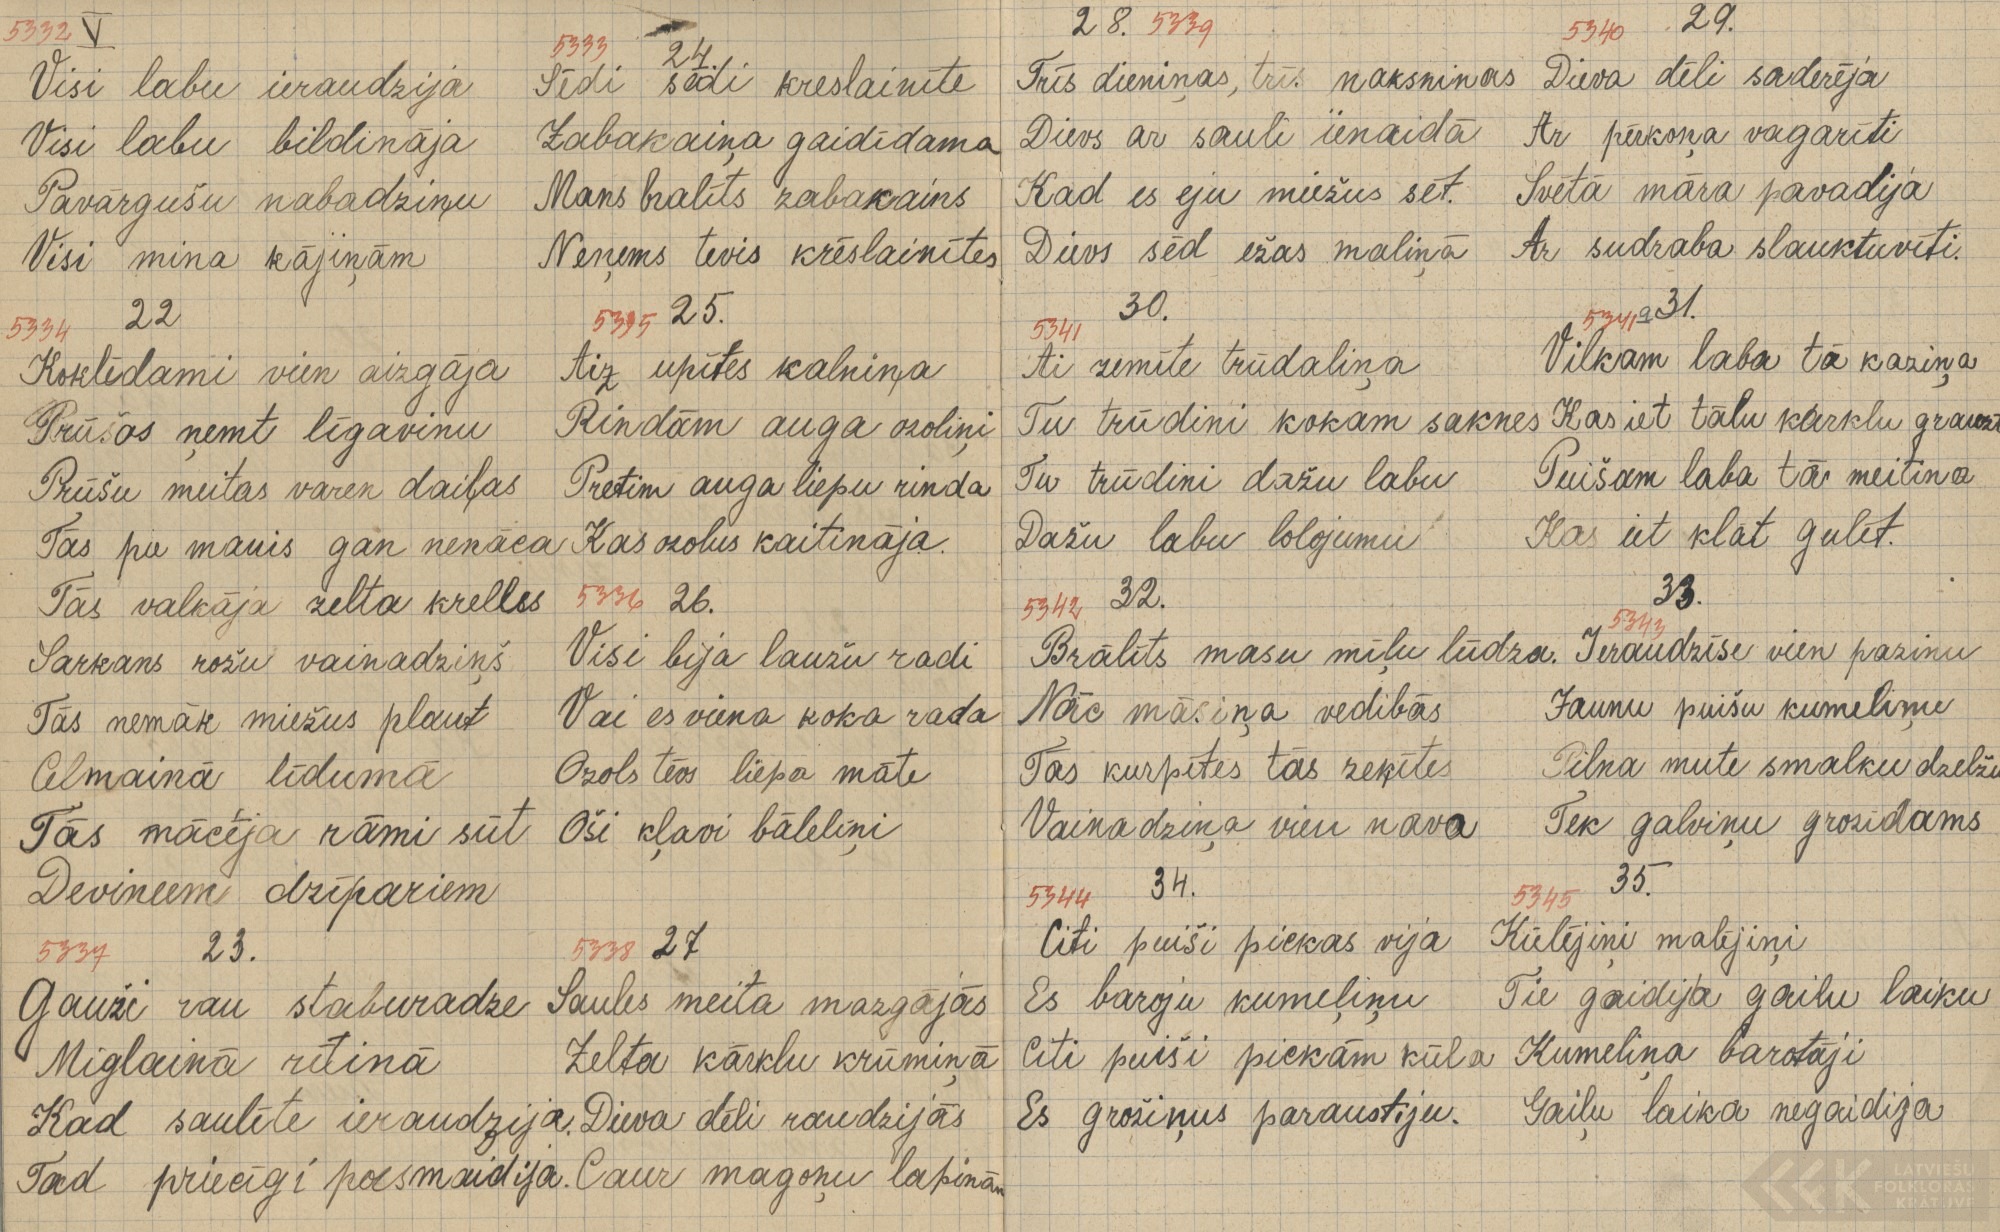 5332 V
Visi labu ieraudzija
Visi labu bildināja
Pavārgušu nabadziņu
Visi mina kājiņām
5334 22
Koklēdami vien aizgāja
Prūšos ņemt līgavinu
Prūšu meitas varen daiļas
Tās pie manis gan nenāca
Tās valkāja zelta krelles
Sarkans rožu vainadziņš
Tās nemāk miežus plaut
Celmainā līdumā
Tās mācēja rāmi sūt
Devineem dzīpariem
5337 23.
Gauži rau staburadze
Miglainā rītinā
Kad saulīte ieraudzija.
Tad priecīgi pasmaidija.
5333 24.
Sēdi sēdi kreslainīte
Zabakaiņa gaidīdama
Mans bralīts zabakains
Neņems tevis krēslainītes
5335 25.
Aiz upītes kalniņa
Rindām auga ozoliņi
Pretim auga liepu rinda
Kas ozolus kaitināja.
5336 26.
Visi bija laužu radi
Vai es viena koka rada
Ozols tēvs liepa māte
Oši kļavi bāleliņi
5338 27
Saules meita mazgājās
Zelta kārklu krūmiņā
Dieva dēli raudzijās
Caur magoņu lapinām
28. 5339
Trīs dieniņas, trīs naksninas
Dievs ar sauli ienaidā
Kad es eju miežus sēt.
Dievs sēd ežas maliņā
5340 29.
Dieva dēli saderēja
Ar pērkoņa vagarīti
Svētā māra pavadija
Ar sudraba slauktuvīti.
5341 30.
Ai zemīte trūdaliņa
Tu trūdini kokam saknes
Tu trūdini dažu labu
Dažu labu lolojumu
5341a 31.
Vilkam laba tā kaziņa
Kas iet tālu kārklu grauzt
Puišam laba tā meitina
Kas iet klāt gulēt.
5342 32.
Brālīts masu mīļu lūdza.
Nāc māsiņa vedibās
Tās kurpītes tās zeķītes
Vainadziņa vien nava
33.
5343
Ieraudzīse vien pazinu
Jaunu puišu kumeliņu
Pilna mute smalku dzelžu
Tek galviņu grozīdams
5344 34.
Citi puiši pickas vija
Es baroju kumeļiņu
Citi puiši pickām kūla
Es grožiņus paraustiju.
5345 35.
Kūlējiņi malējiņi
Tie gaidija gaiļu laiku
Kumeliņa barotāji
Gaiļu laika negaidija
LATVIEŠU
FOLKLORAS
KRĀTUVE